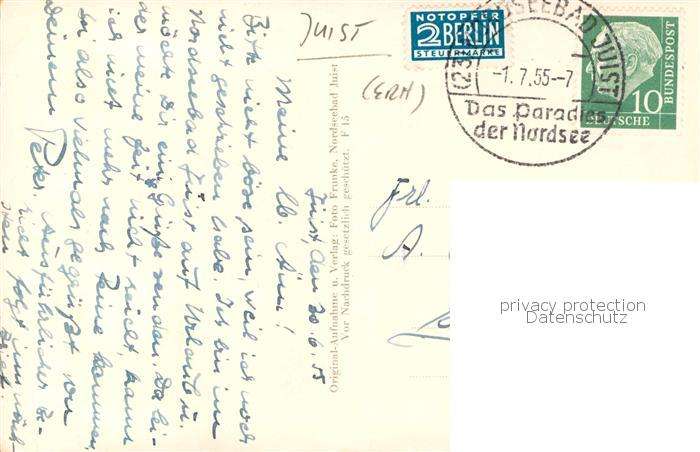 JUIST
(ERH)
NOTOPFER
2 BERLIN
STEUERMARKE
(23) NORDSEEBAD JUIST
-1.7.55--7
Das Paradies
der Nordsee
DEUTSCHE BUNDESPOST
10
Juist, den 30.6.55
Meine lb. Änni!
Bitte nicht böse sein, weil ich noch
nicht geschrieben habe. Ich bin im
Nordseebad Juist auf Urlaub u.
möchte Dir einige Grüße senden. Da lei-
der meine Zeit nicht reicht, kann
ich nicht mehr nach Peine kommen.
Sei also vielmals gegrüßt von
Deinem Peter. Ausführlicher Be-
richt folgt in näch-
ster Zeit.
Original-Aufnahme u. Verlag: Foto Franke, Nordseebad Juist
Vor Nachdruck gesetzlich geschützt. F 15
Frl.
A.
privacy protection
Datenschutz